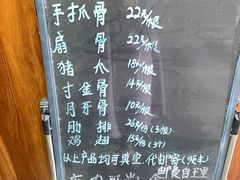 手抓骨 22元/根
扇骨 22元/根
猪爪 18元/根
寸金骨 14元/根
月牙骨 10元/根
肋排 26元/份(3根)
鸡翅 15元/份(3个)
以上产品均可真空.代邮寄(顺丰)